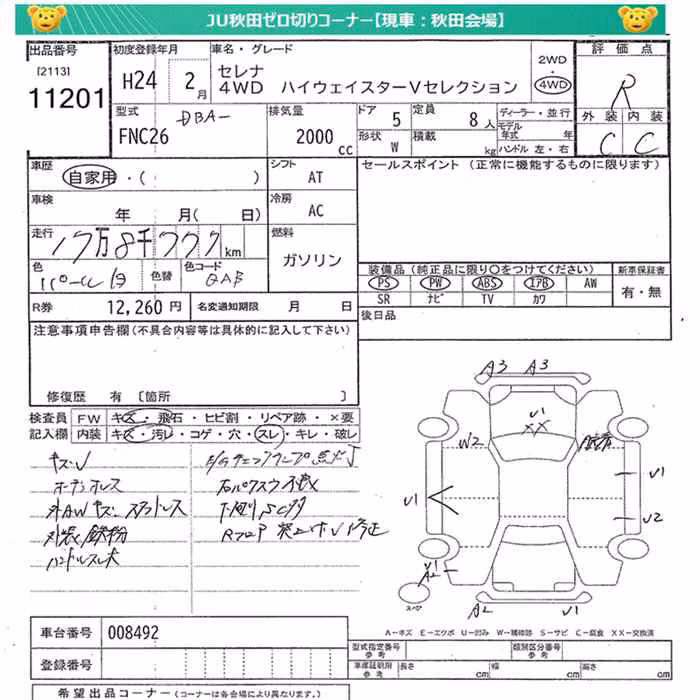 JU秋田ゼロ切りコーナー【現車：秋田会場】
出品番号 初度登録年月 車名・グレード 2WD 評価点
[2113] H24 2月 セレナ 4WD
11201 4WD ハイウェイスターVセレクション R
型式 排気量 ドア 定員 ディーラー・並行 外装 内装
DBA- 5 8人 モデル年式 年
FNC26 2000cc 形状 積載 ハンドル 左・右 C C
W kg
車歴 シフト セールスポイント (正常に機能するものに限ります)
自家用・( ) AT
車検 冷房
年 月( 日) AC
走行 燃料
17万8千777km ガソリン
色 色替 色コード 装備品(純正品に限り○をつけてください) 新車保証書
パール白 QAB PS PW ABS エアB AW 有・無
SR ナビ TV カワ
R券 12,260円 名変通知期限 月 日 後日品
注意事項申告欄(不具合内容等は具体的に記入して下さい)
修復歴 有 [箇所 ]
検査員 FW キズ・飛石・ヒビ割・リペア跡・×要
記入欄 内装 キズ・汚レ・コゲ・穴・スレ・キレ・破レ
キズU
外AWキズ スタットレス
外装鉄粉
ハンドルスレ大
下廻りSC多
A3 A3
U1
XX
W2
U1 U1
U2
U1
A2
スペア
A2 U1
A－キズ E－エクボ U－凹み W－補修跡 S－サビ C－腐食 XX－交換済
車台番号 008492 型式指定番号 参考 類別区分番号 参考
登録番号 車庫証明用 参考 長さ cm 幅 cm 高さ cm
希望出品コーナー (コーナーは各会場により異なります。)